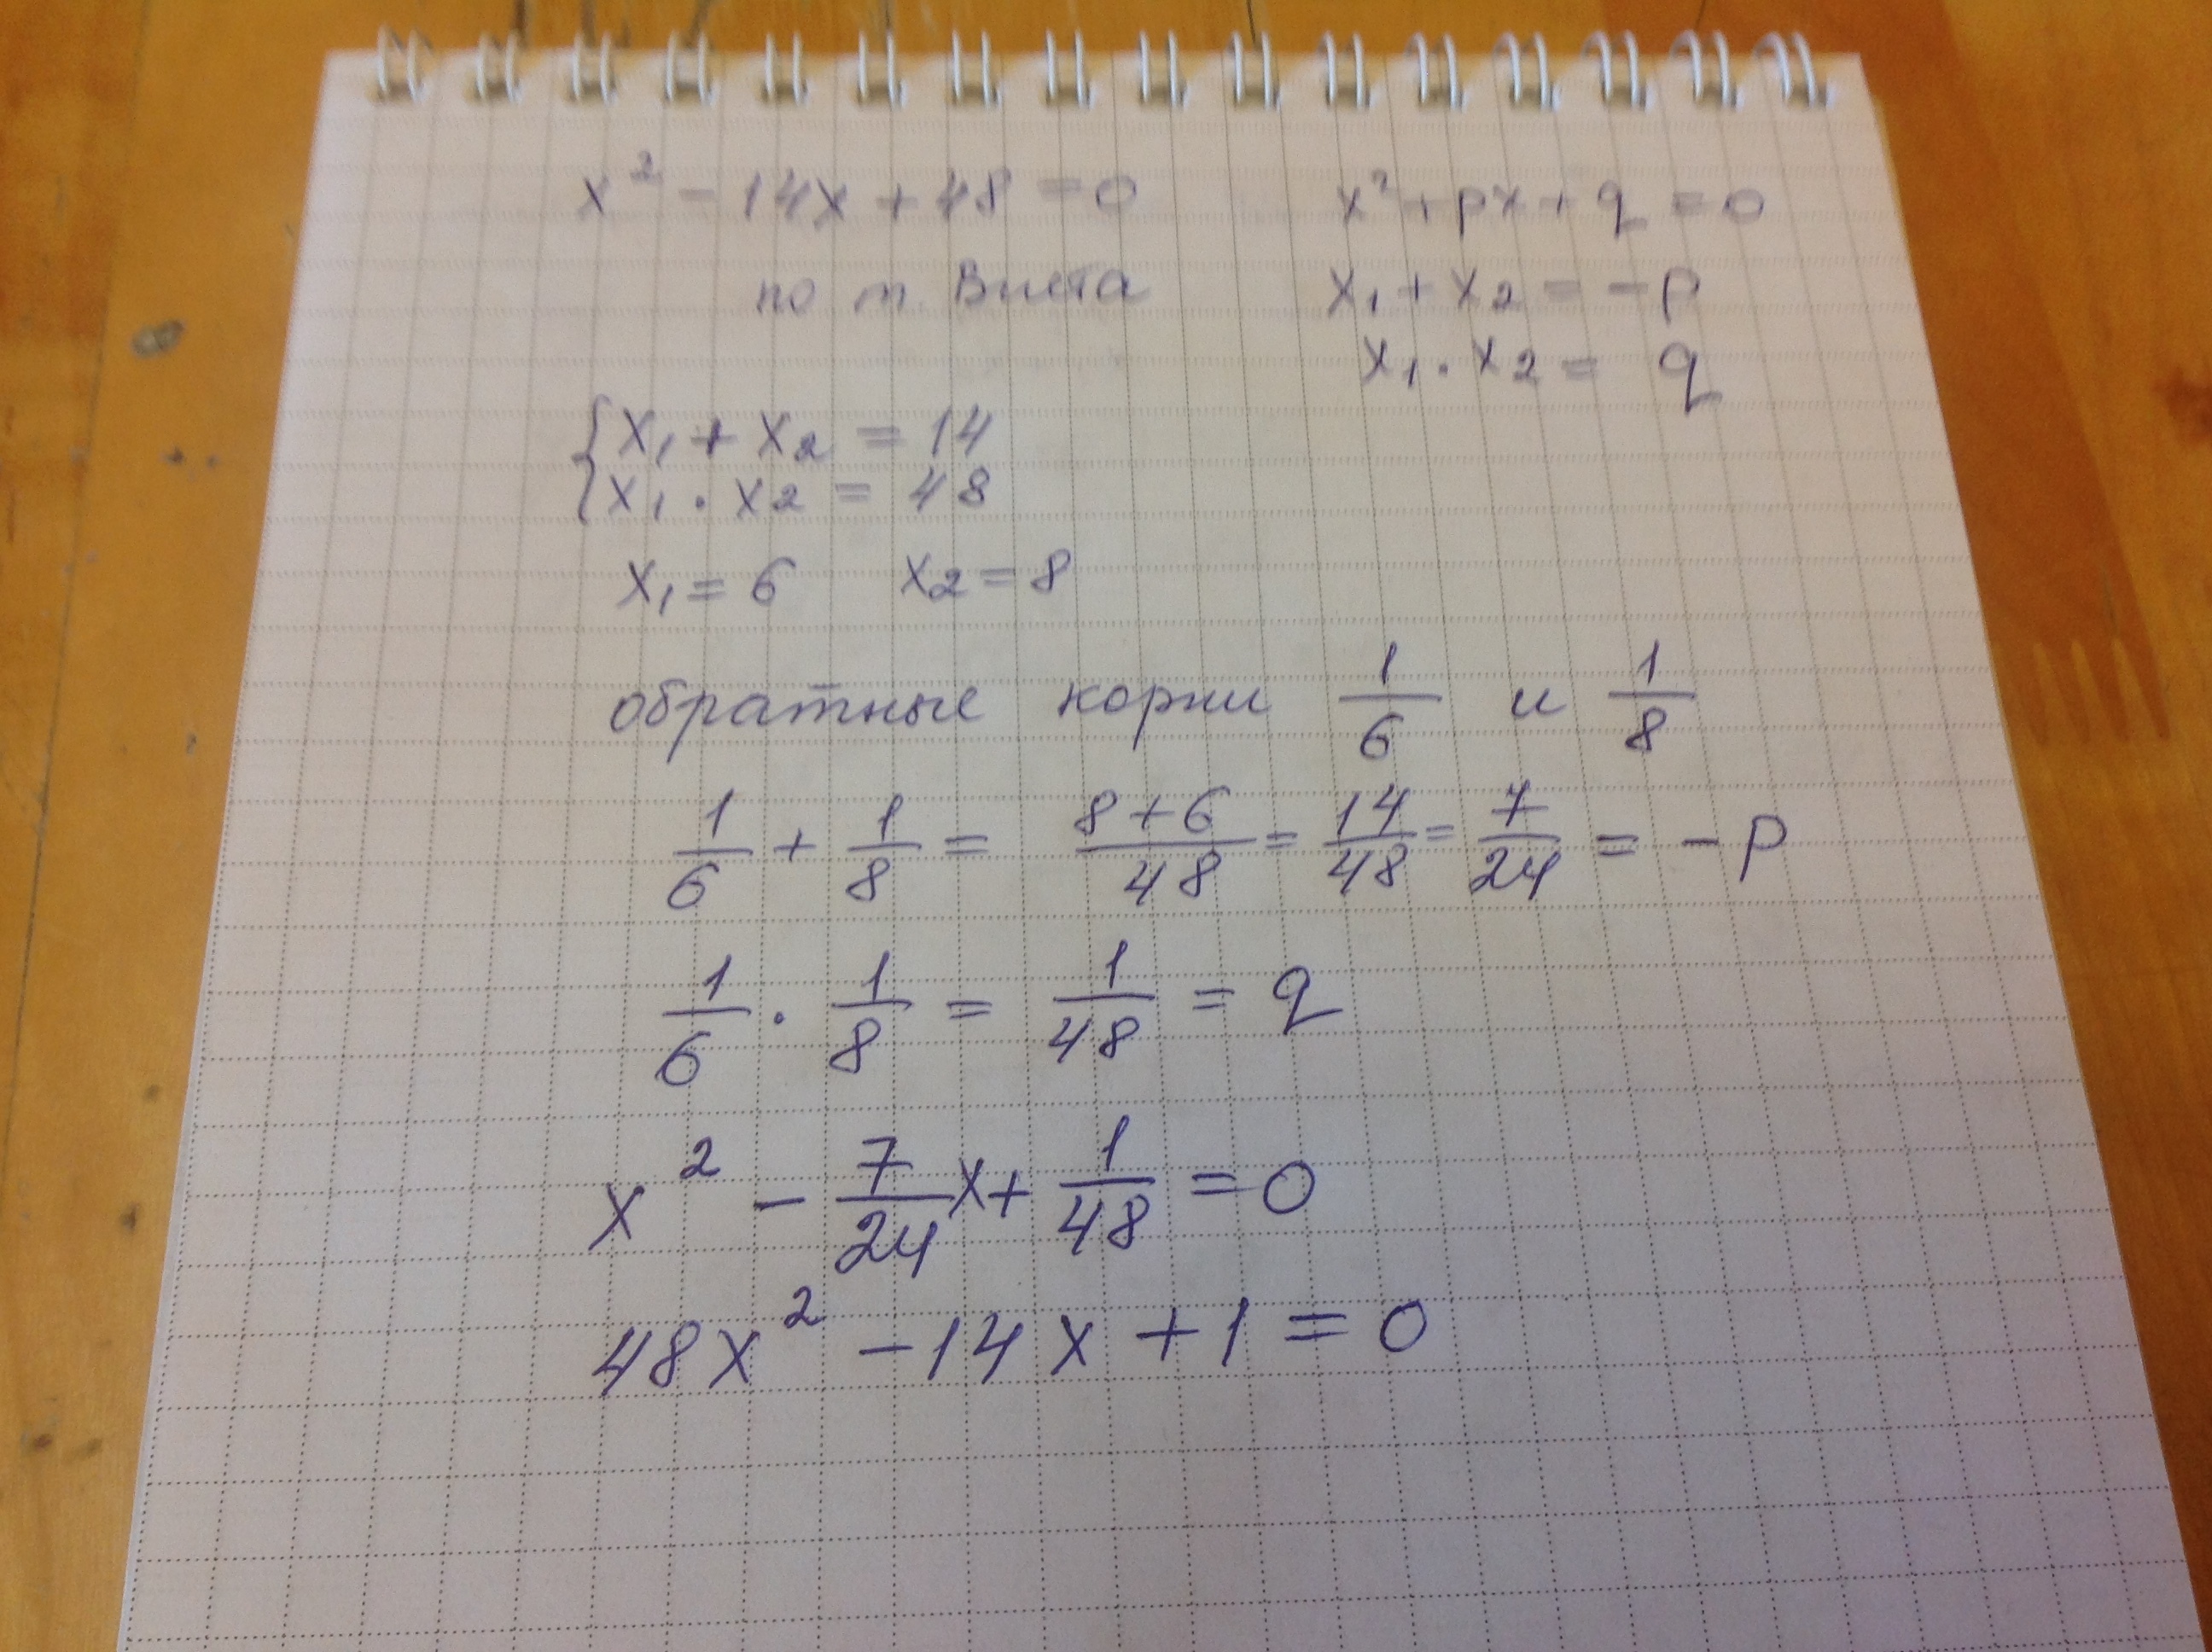 x² - 14x + 48 = 0
x² + px + q = 0
по т. Виета
x₁ + x₂ = -p
x₁ · x₂ = q
{ x₁ + x₂ = 14
x₁ · x₂ = 48
x₁ = 6 x₂ = 8
обратные корни 1/6 и 1/8
1/6 + 1/8 = (8+6)/48 = 14/48 = 7/24 = -p
1/6 · 1/8 = 1/48 = q
x² - 7/24 x + 1/48 = 0
48x² - 14x + 1 = 0